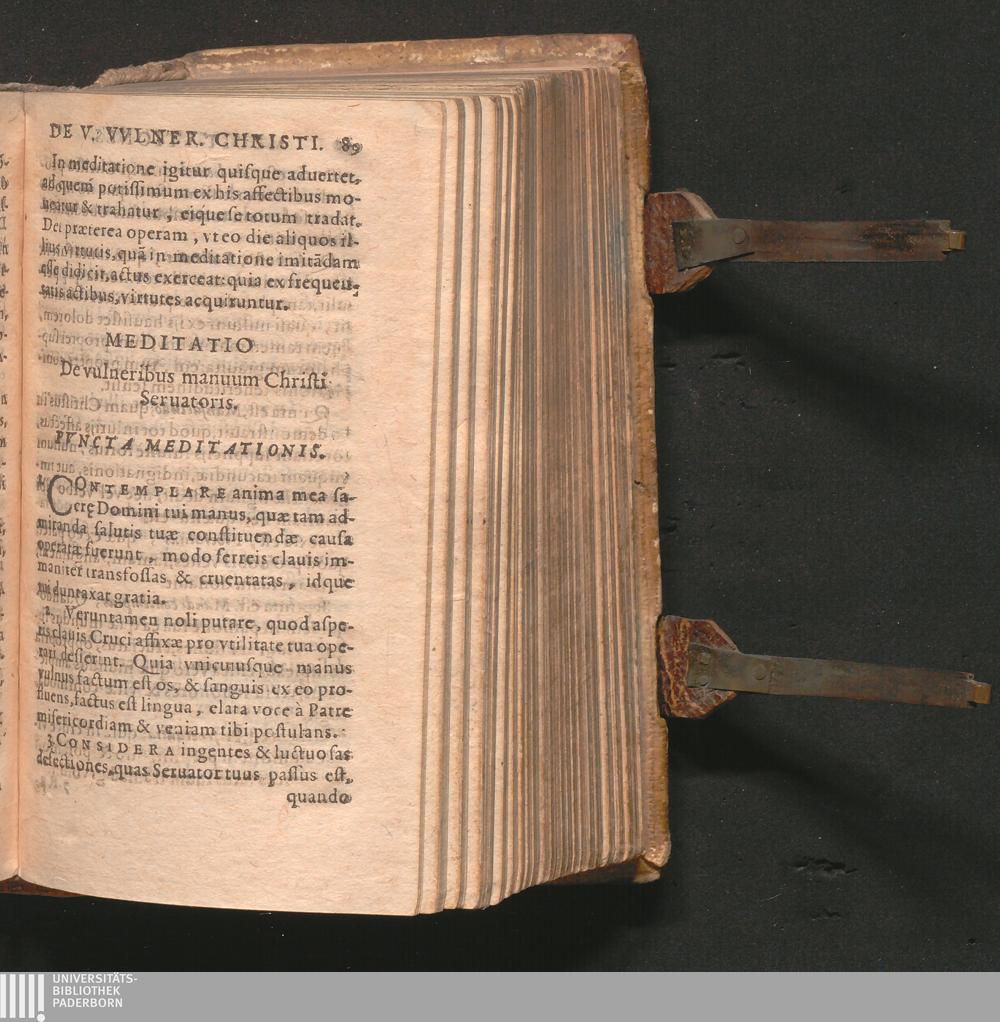 DE V. VVLNER. CHRISTI. 89
In meditatione igitur quiſque aduertet,
ad quem potiſſimum ex his affectibus mo-
ueatur & trahatur, eique ſe totum tradat.
Det præterea operam, vt eo die aliquos il-
lius virtutis, quā in meditatione imitādam
eſſe didicit, actus exerceat: quia ex frequen-
tatis actibus, virtutes acquiruntur.
MEDITATIO
De vulneribus manuum Chriſti
Seruatoris.
PVNCTA MEDITATIONIS.
1. CONTEMPLARE anima mea ſa-
cerę Domini tui manus, quæ tam ad-
miranda ſalutis tuæ conſtituendæ cauſa
operatæ fuerunt, modo ferreis clauis im-
maniter transfoſſas & cruentatas, idque
tui duntaxat gratia.
2. Veruntamen noli putare, quod aſpe-
ris clauis Cruci affixæ pro vtilitate tua ope-
rari deſierint. Quia vnicuiuſque manus
vulnus factum eſt os, & ſanguis ex eo pro-
fluens, factus eſt lingua, elata voce à Patre
miſericordiam & veniam tibi poſtulans.
3. CONSIDERA ingentes & luctuoſas
defectiones, quas Seruator tuus paſſus eſt,
quando
UNIVERSITÄTS-
BIBLIOTHEK
PADERBORN